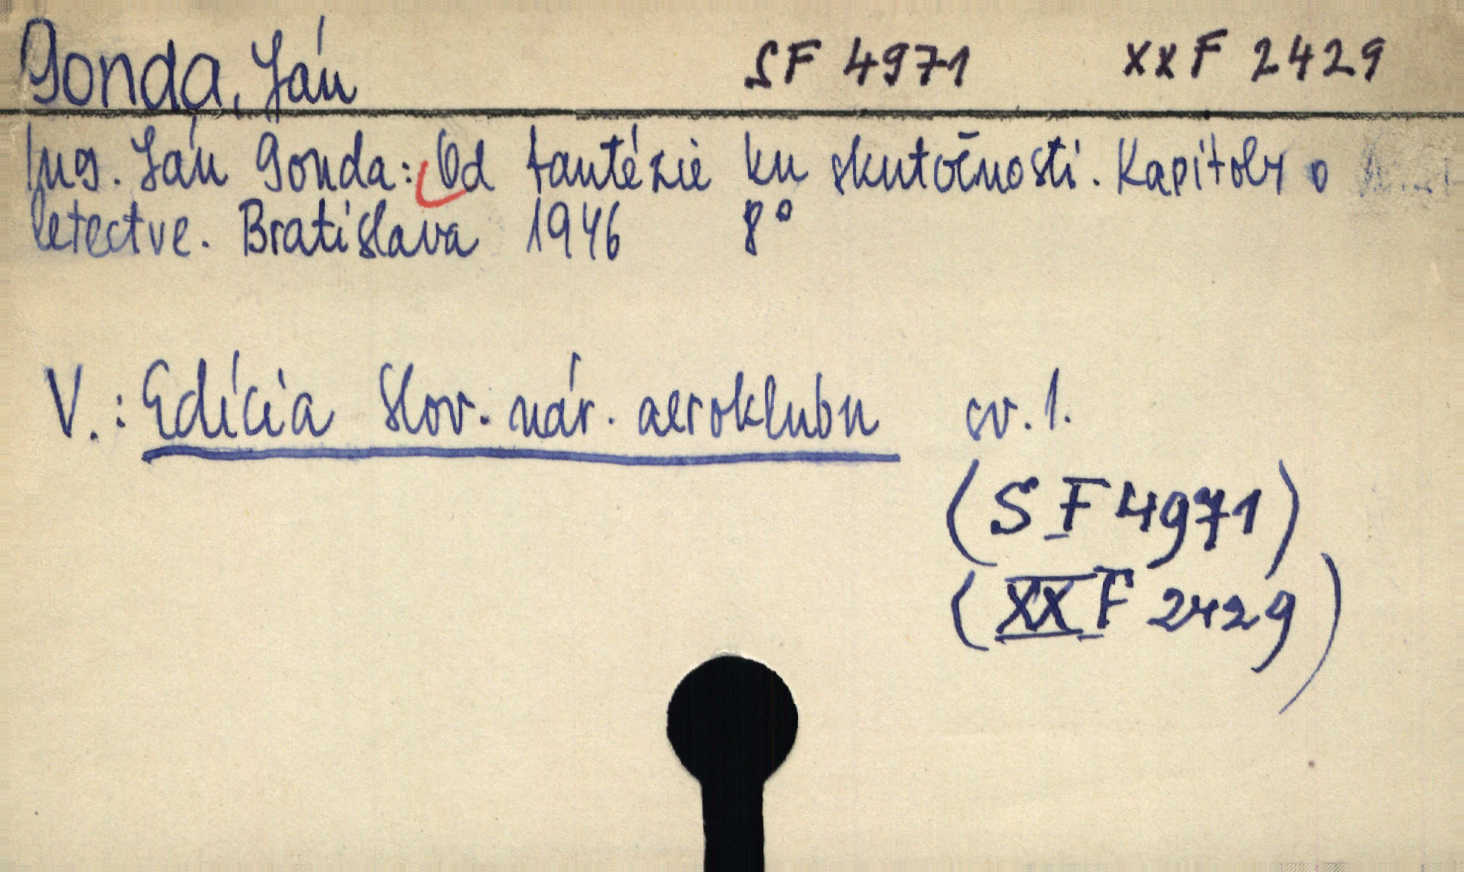 Gonda, Ján SF 4971 XXF 2429
Ing. Ján Gonda: Od fantázie ku skutočnosti. Kapitoly o
letectve. Bratislava 1946 8°
V.: Edícia Slov. nár. aeroklubu sv. 1.
(SF 4971)
(XXF 2429)